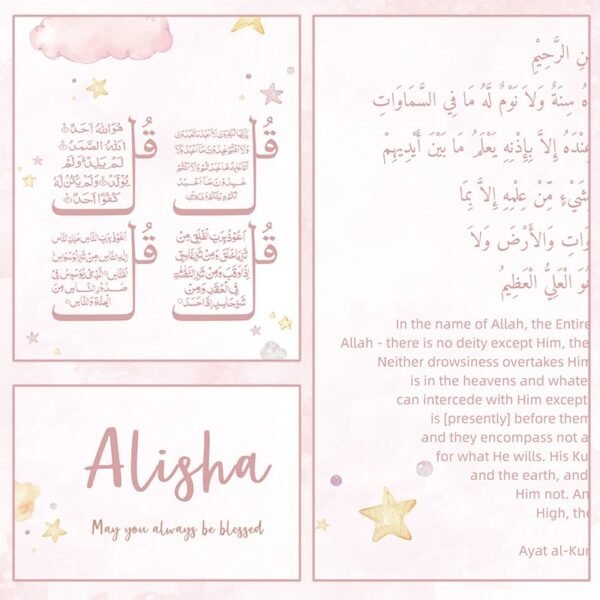 قُل
هُوَ اللهُ اَحَدٌ
اَللهُ الصَّمَدُ
لَمْ يَلِدْ وَلَمْ
يُولَدْ وَلَمْ يَكُنْ لَهُ
كُفُوًا اَحَدٌ
قُل
قُل
اَعُوْذُ بِرَبِّ النَّاسِ مَلِكِ النَّاسِ
اِلٰهِ النَّاسِ مِنْ شَرِّ الْوَسْوَاسِ
الْخَنَّاسِ الَّذِي يُوَسْوِسُ فِي
صُدُورِ النَّاسِ مِنَ
الْجِنَّةِ وَالنَّاسِ
قُل
اَعُوذُ بِرَبِّ الْفَلَقِ مِنْ
شَرِّ مَا خَلَقَ وَمِنْ شَرِّ غَاسِقٍ
اِذَا وَقَبَ وَمِنْ شَرِّ النَّفّٰثٰتِ
فِي الْعُقَدِ وَمِنْ
شَرِّ حَاسِدٍ اِذَا حَسَدَ
Alisha
May you always be blessed
نِ الرَّحِيْمِ
هُ سِنَةٌ وَلاَ نَوْمٌ لَّهُ مَا فِي السَّمَاوَاتِ
عِنْدَهُ إِلاَّ بِإِذْنِهِ يَعْلَمُ مَا بَيْنَ أَيْدِيهِمْ
شَيْءٍ مِّنْ عِلْمِهِ إِلاَّ بِمَا
وَاتِ وَالأَرْضَ وَلاَ
هُوَ الْعَلِيُّ الْعَظِيمُ
In the name of Allah, the Entire
Allah - there is no deity except Him, the
Neither drowsiness overtakes Him
is in the heavens and whate
can intercede with Him except
is [presently] before them
and they encompass not a
for what He wills. His Ku
and the earth, and
Him not. An
High, the
Ayat al-Kur